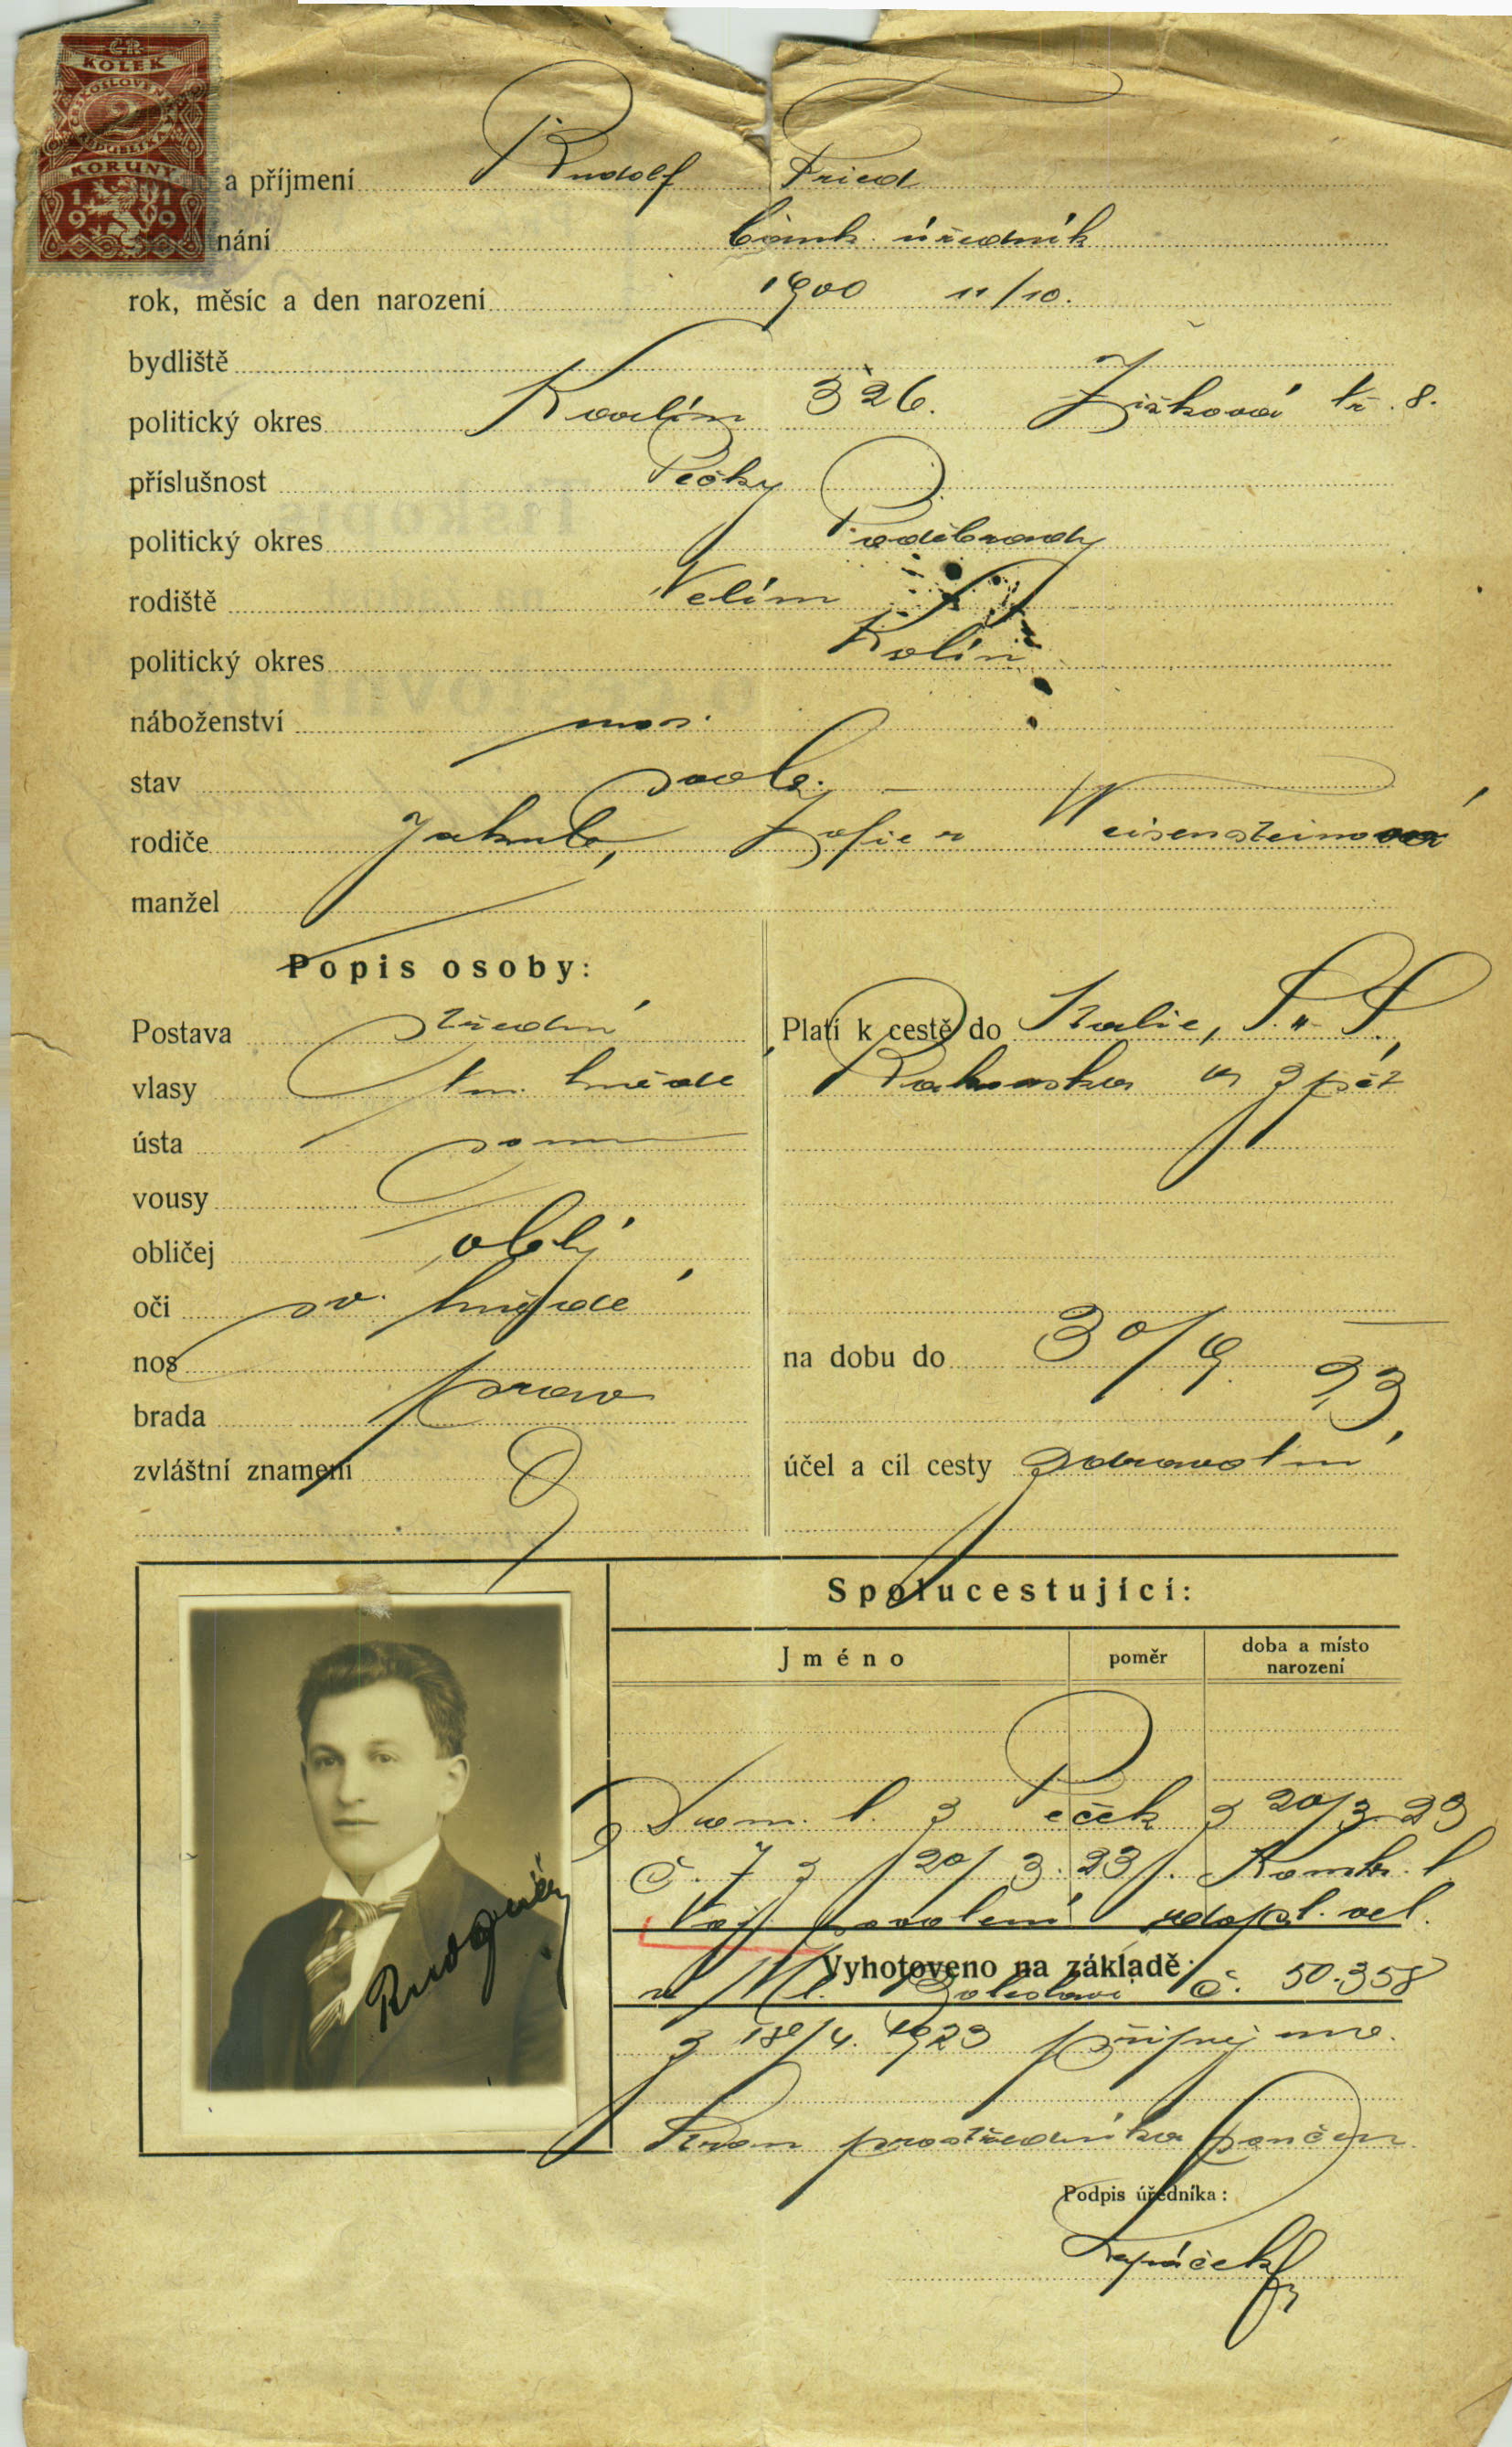 ČR
KOLEK
ČESKOSLOVENSKÁ
2
REPUBLIKA
KORUNY
1919
a příjmení Rudolf Fried
nání bank. úředník
rok, měsíc a den narození 1900 11/10.
bydliště
politický okres 326. Žižkova tř. 8.
příslušnost Pečky
politický okres Poděbrady
rodiště Velím
politický okres Kolín
náboženství mos.
stav svob.
rodiče Jakub, Žofie r Weisensteinová
manžel
Popis osoby:
Postava střední
vlasy tm. hnědé
ústa soum
vousy
obličej oblý
oči sv. hnědé
nos
brada
zvláštní znamení
Platí k cestě do Italie, S. H. S.,
Rakouska a zpět
na dobu do 30/9. 23,
účel a cíl cesty zdravotní
Spolucestující:
Jméno poměr doba a místo narození
Dom. l. z Peček z 20/3 23
č. 7 z 20/3. 23
Voj. povolení dopl. vel.
Vyhotoveno na základě:
v Ml. Boleslavi č. 50.358
z 18/4. 1923
prostředníka
Podpis úředníka: